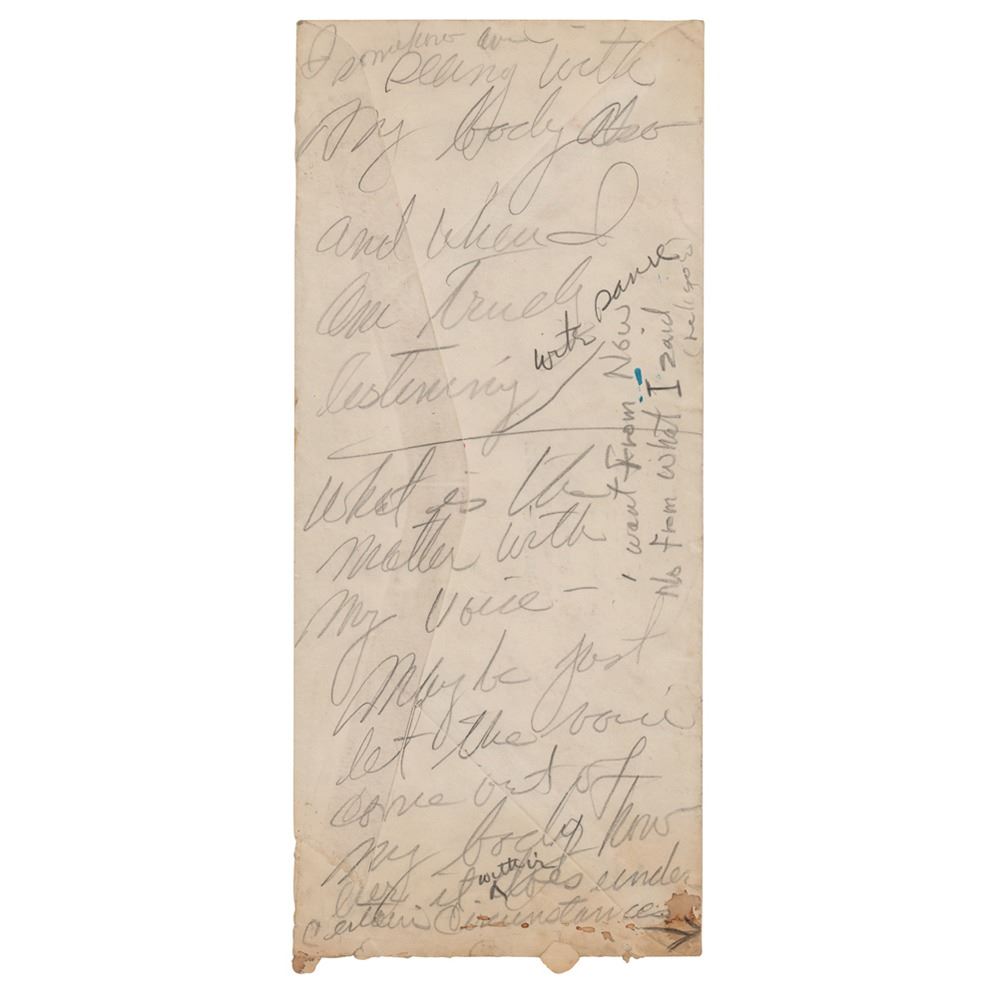 I somehow am
seeing with
my body also
and when I
am truely
listening
with dance
What is the
matter with
my voice –
May be just
let the voice
come out of
my body how
ever it does under
within
certain circumstances
want from Now
No from what I said